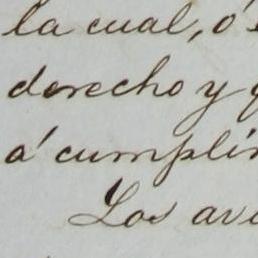 la cual, ó
derecho y
á cumplir
Los av